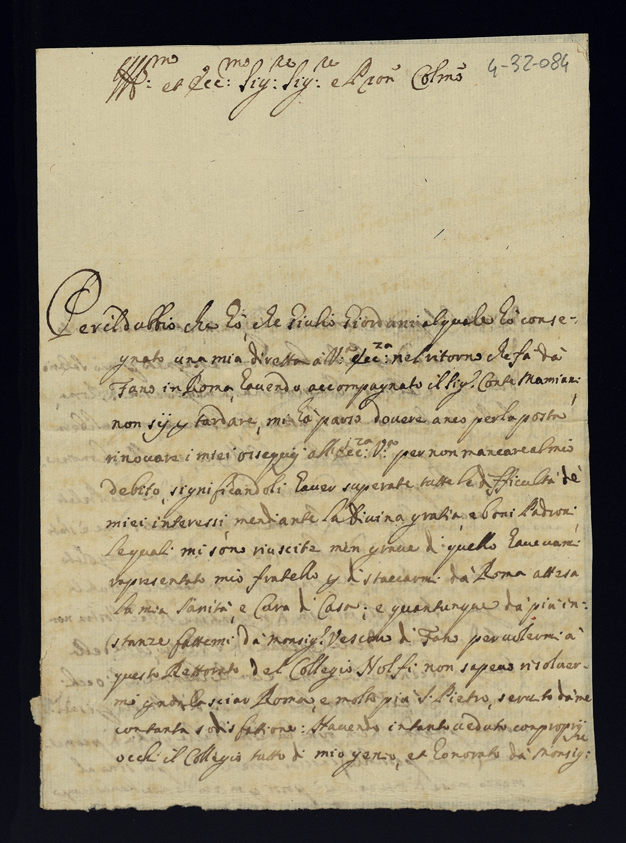 Ill:mo et Ecc:mo Sig:re Sig:re e Pron Colmo 4-32-084
Per il dubbio che hò, che Giulio Giordani al quale hò conse-
gnato una mia diretta all'V: Ecc:za nel ritorno che fa dà
Fano in Roma, havendo accompagnato il Sig.r Conte Mamiani
non sij p tardare, mi hà parso dovere anco per la posta
rinovare i miei ossequij all'Ecc:za V:a per non mancare al mio
debito, significandoli haver superate tutte le difficultà dè
miei interessi mendiante la divina gratia, e boni Padroni,
le quali mi sono riuscite men grave di quello havevami
rapresentato mio fratello p distaccarmi dà Roma attesa
la mia Sanità, e Cura di Casa; e quantunque dà più in:
stanze fattemi dà Monsig:r Vescovo di Fano per volermi à
questo Rettorato del Collegio Nolfi non sapevo risolver-
mi lasciar Roma, e molto più S. Pietro, servito dà me
con tanta sodisfatione: Havendo in tanto veduto con proprij
occhi il Collegio tutto di mio genio, et honorato dà Monsig:re